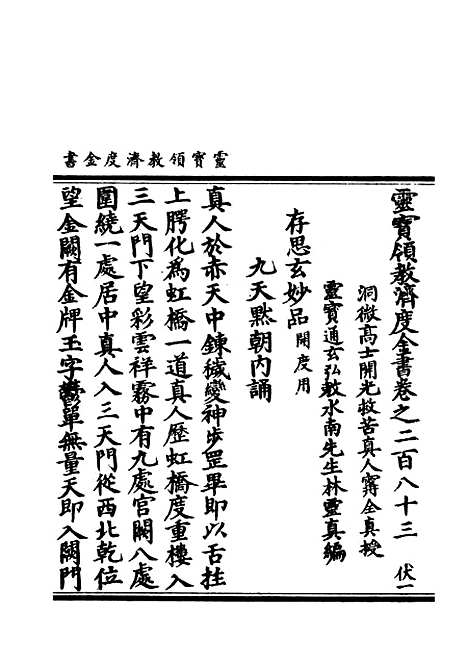 靈寶領教濟度金書
靈寶領教濟度金書卷之二百八十三 伏一
洞微高士開光救苦真人甯全真授
靈寶通玄弘教水南先生林靈真編
存思玄妙品 開度用
九天默朝內誦
真人於赤天中鍊穢變神步罡畢即以舌拄
上腭化為虹橋一道真人歷虹橋度重樓入
三天門下望彩雲祥霧中有九處官闕八處
圍繞一處居中真人入三天門從西北乾位
望金闕有金牌玉字鬱單無量天即入闕門